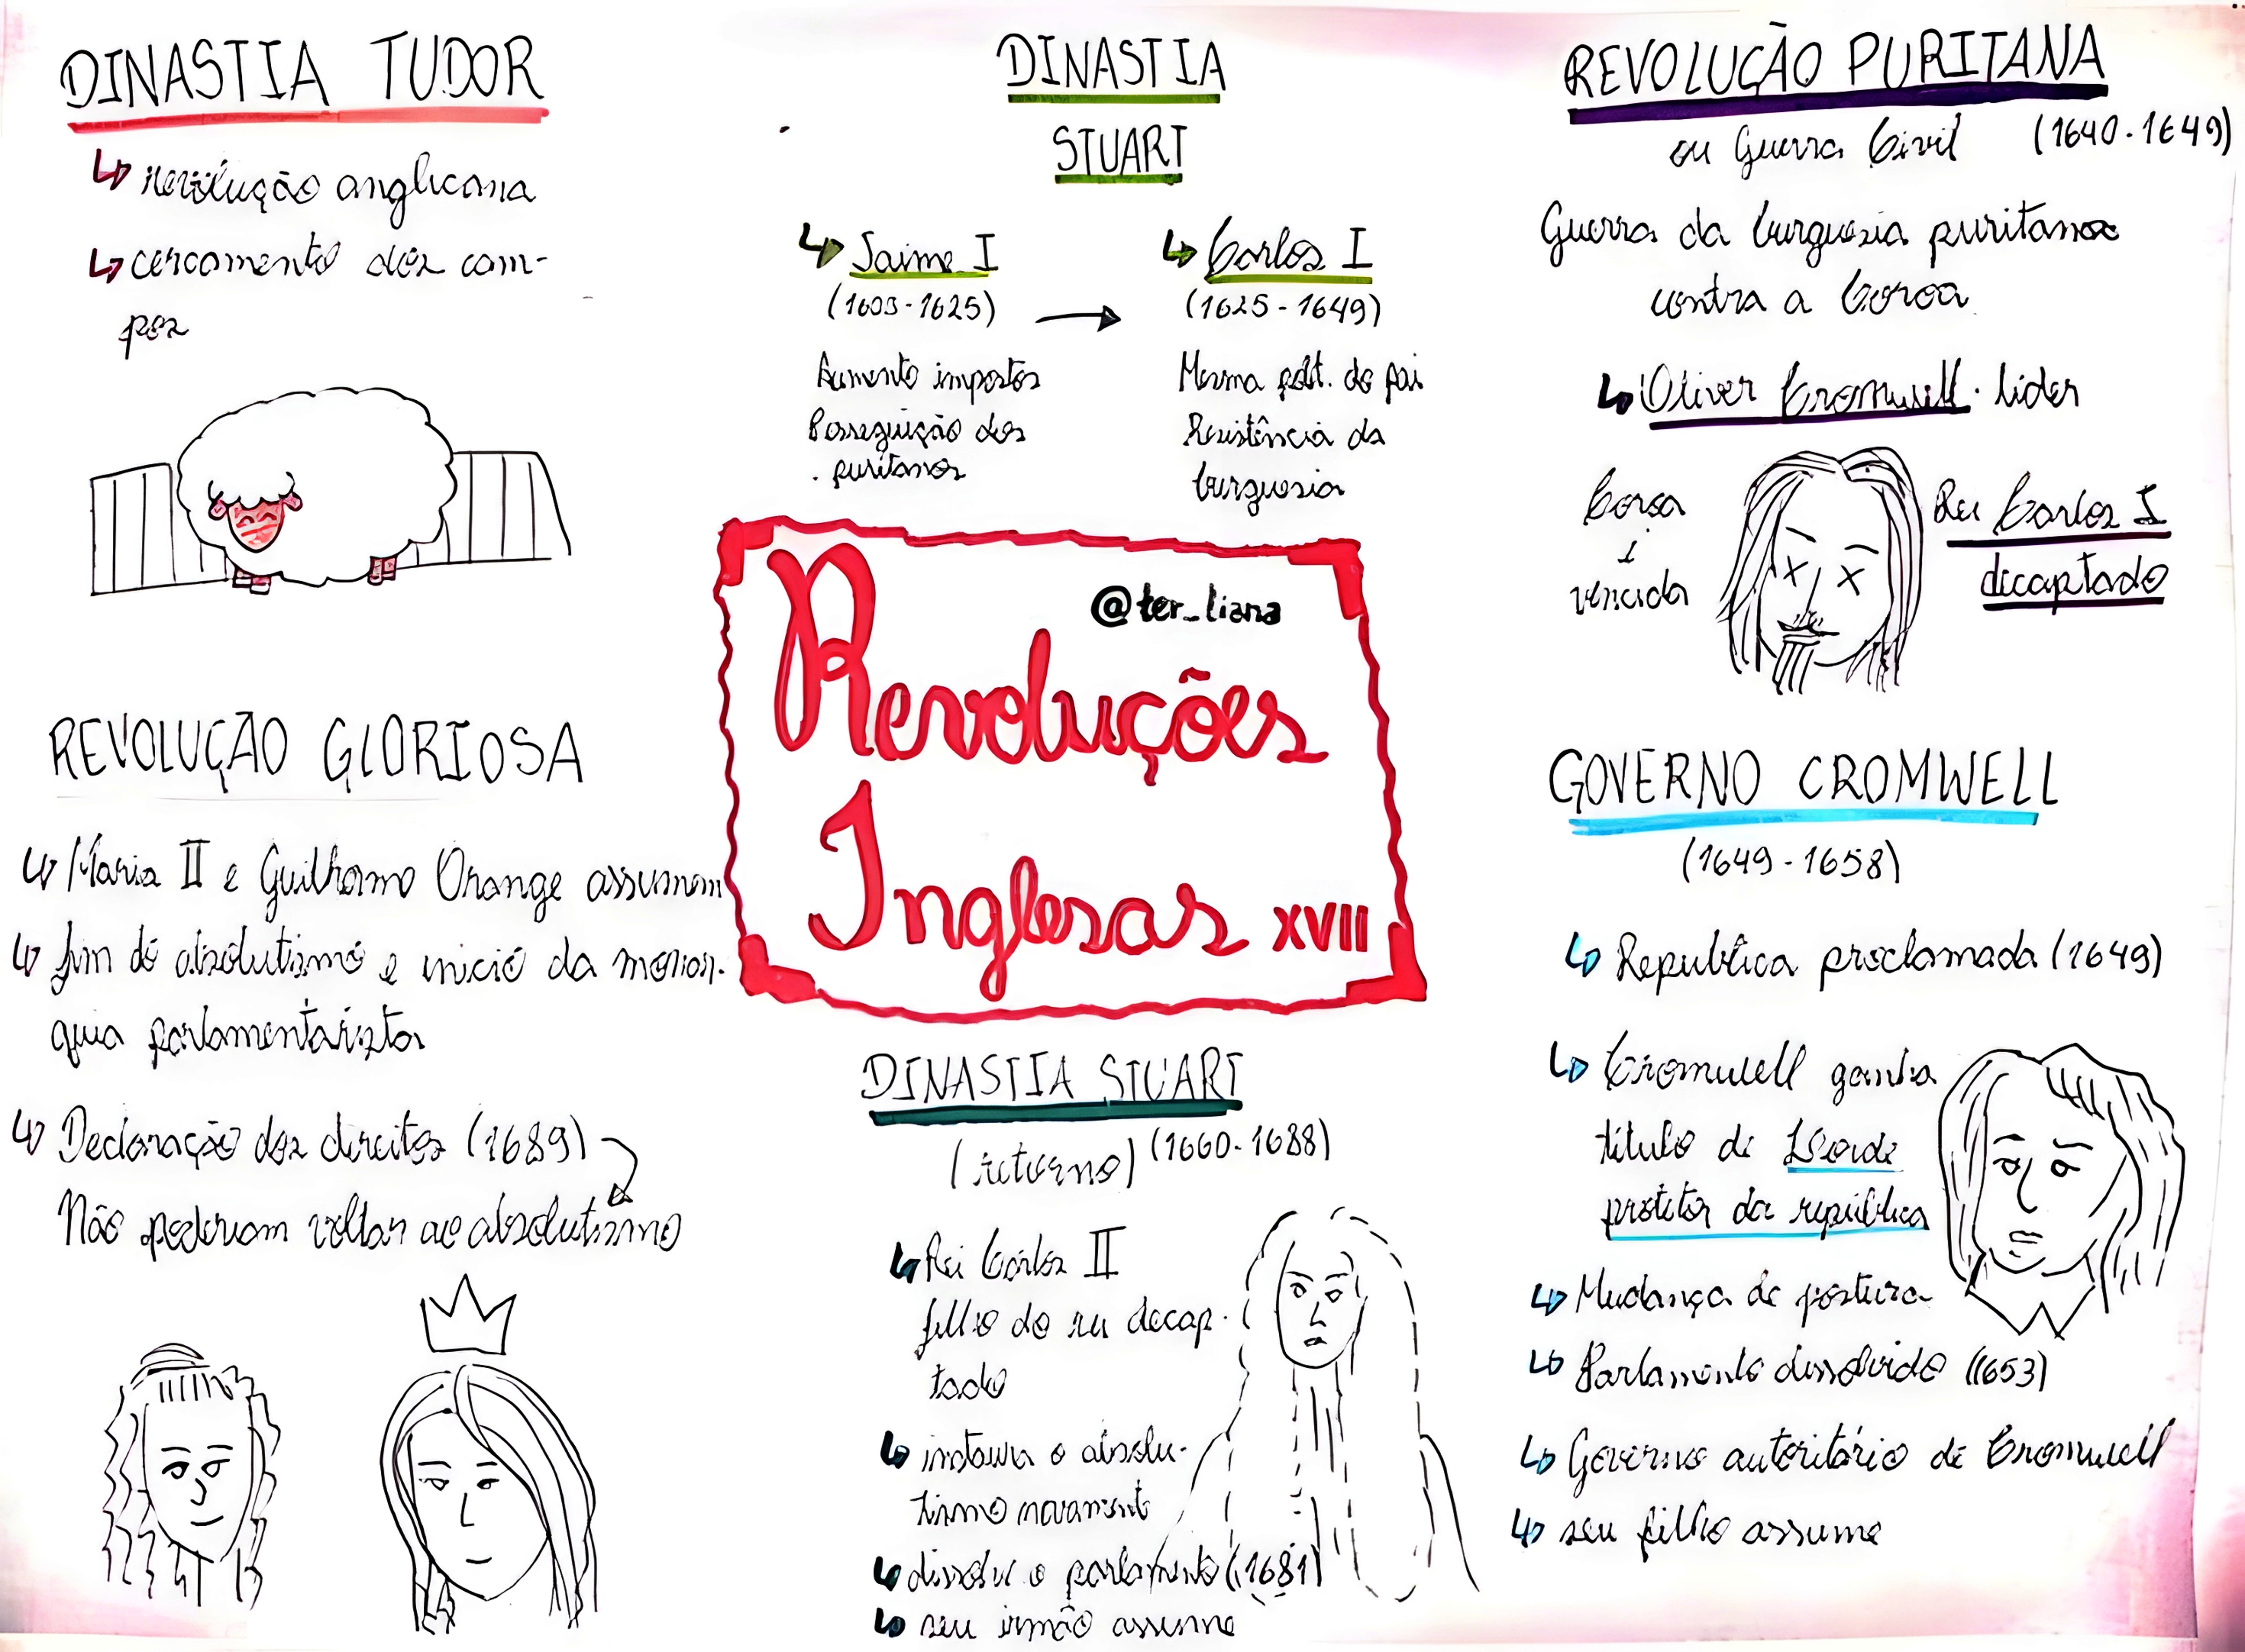 DINASTIA TUDOR
↳ revolução anglicana
↳ cercamento dos cam-
pos
DINASTIA
STUART
↳ Jaime I
(1603-1625) →
Aumento impostos
Perseguição dos
puritanos
↳ Carlos I
(1625-1649)
Mesma polít. do pai
Resistência da
burguesia
REVOLUÇÃO PURITANA
ou Guerra Civil (1640-1649)
Guerra da burguesia puritana
contra a Coroa
↳ Oliver Cromwell · líder
Coroa
é
vencida
Rei Carlos I
decaptado
@ter_liana
Revoluções
Inglesas XVII
REVOLUÇÃO GLORIOSA
↳ Maria II e Guilherme Orange assumem
↳ fim do absolutismo e início da monar-
quia parlamentarista
↳ Declaração dos direitos (1689)
Não poderiam voltar ao absolutismo
DINASTIA STUART
(retorno) (1660-1688)
↳ Rei Carlos II
filho do rei decap-
tado
↳ instaura o absolu-
tismo novamente
↳ dissolve o parlamento (1681)
↳ seu irmão assume
GOVERNO CROMWELL
(1649-1658)
↳ República proclamada (1649)
↳ Cromwell ganha
título de Lorde
protetor da república
↳ Mudança de postura
↳ Parlamento dissolvido (1653)
↳ Governo autoritário de Cromwell
↳ seu filho assume